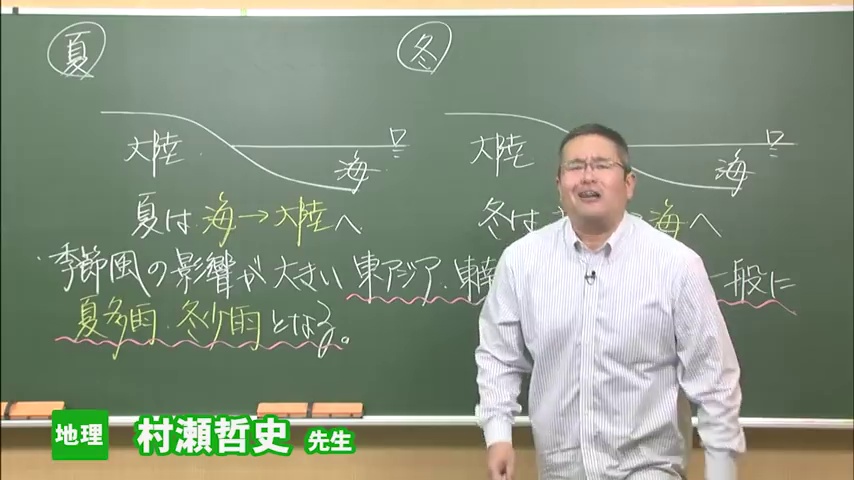 夏
冬
大陸 海
大陸 海
夏は 海→大陸へ
冬は 海へ
季節風の影響が大きい東アジア・東南 一般に
夏多雨・冬少雨となる。
地理 村瀬哲史 先生